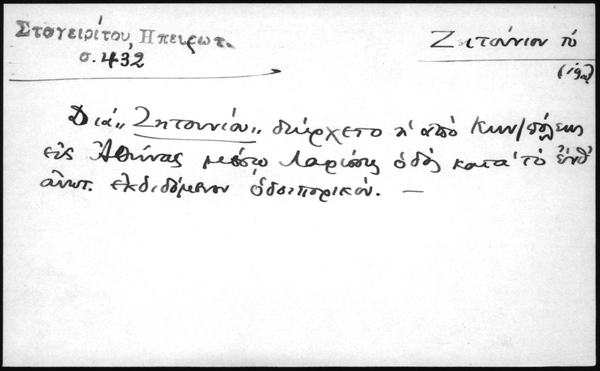 Σταγειρίτου, Ηπειρωτ.
σ. 432
Ζητούνιον τό
Διά „Ζητουνίου„ διήρχετο ἡ ἀπό Κων/πόλεως
εἰς Ἀθήνας μέσῳ Λαρίσης ὁδός κατά τό ἐνθ᾽
ἀνωτ. ἐκδιδόμενον ὁδοιπορικόν. —